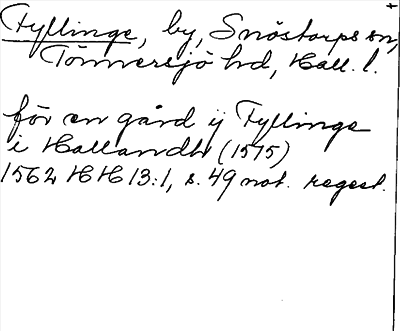 Fyllinge, by, Snöstorps sn,
Tönnersjö hd, Hall. l.
för en gård ij Fyllinge
i Hallandh (1575)
1562 HH 13:1, s. 49 not. regest.